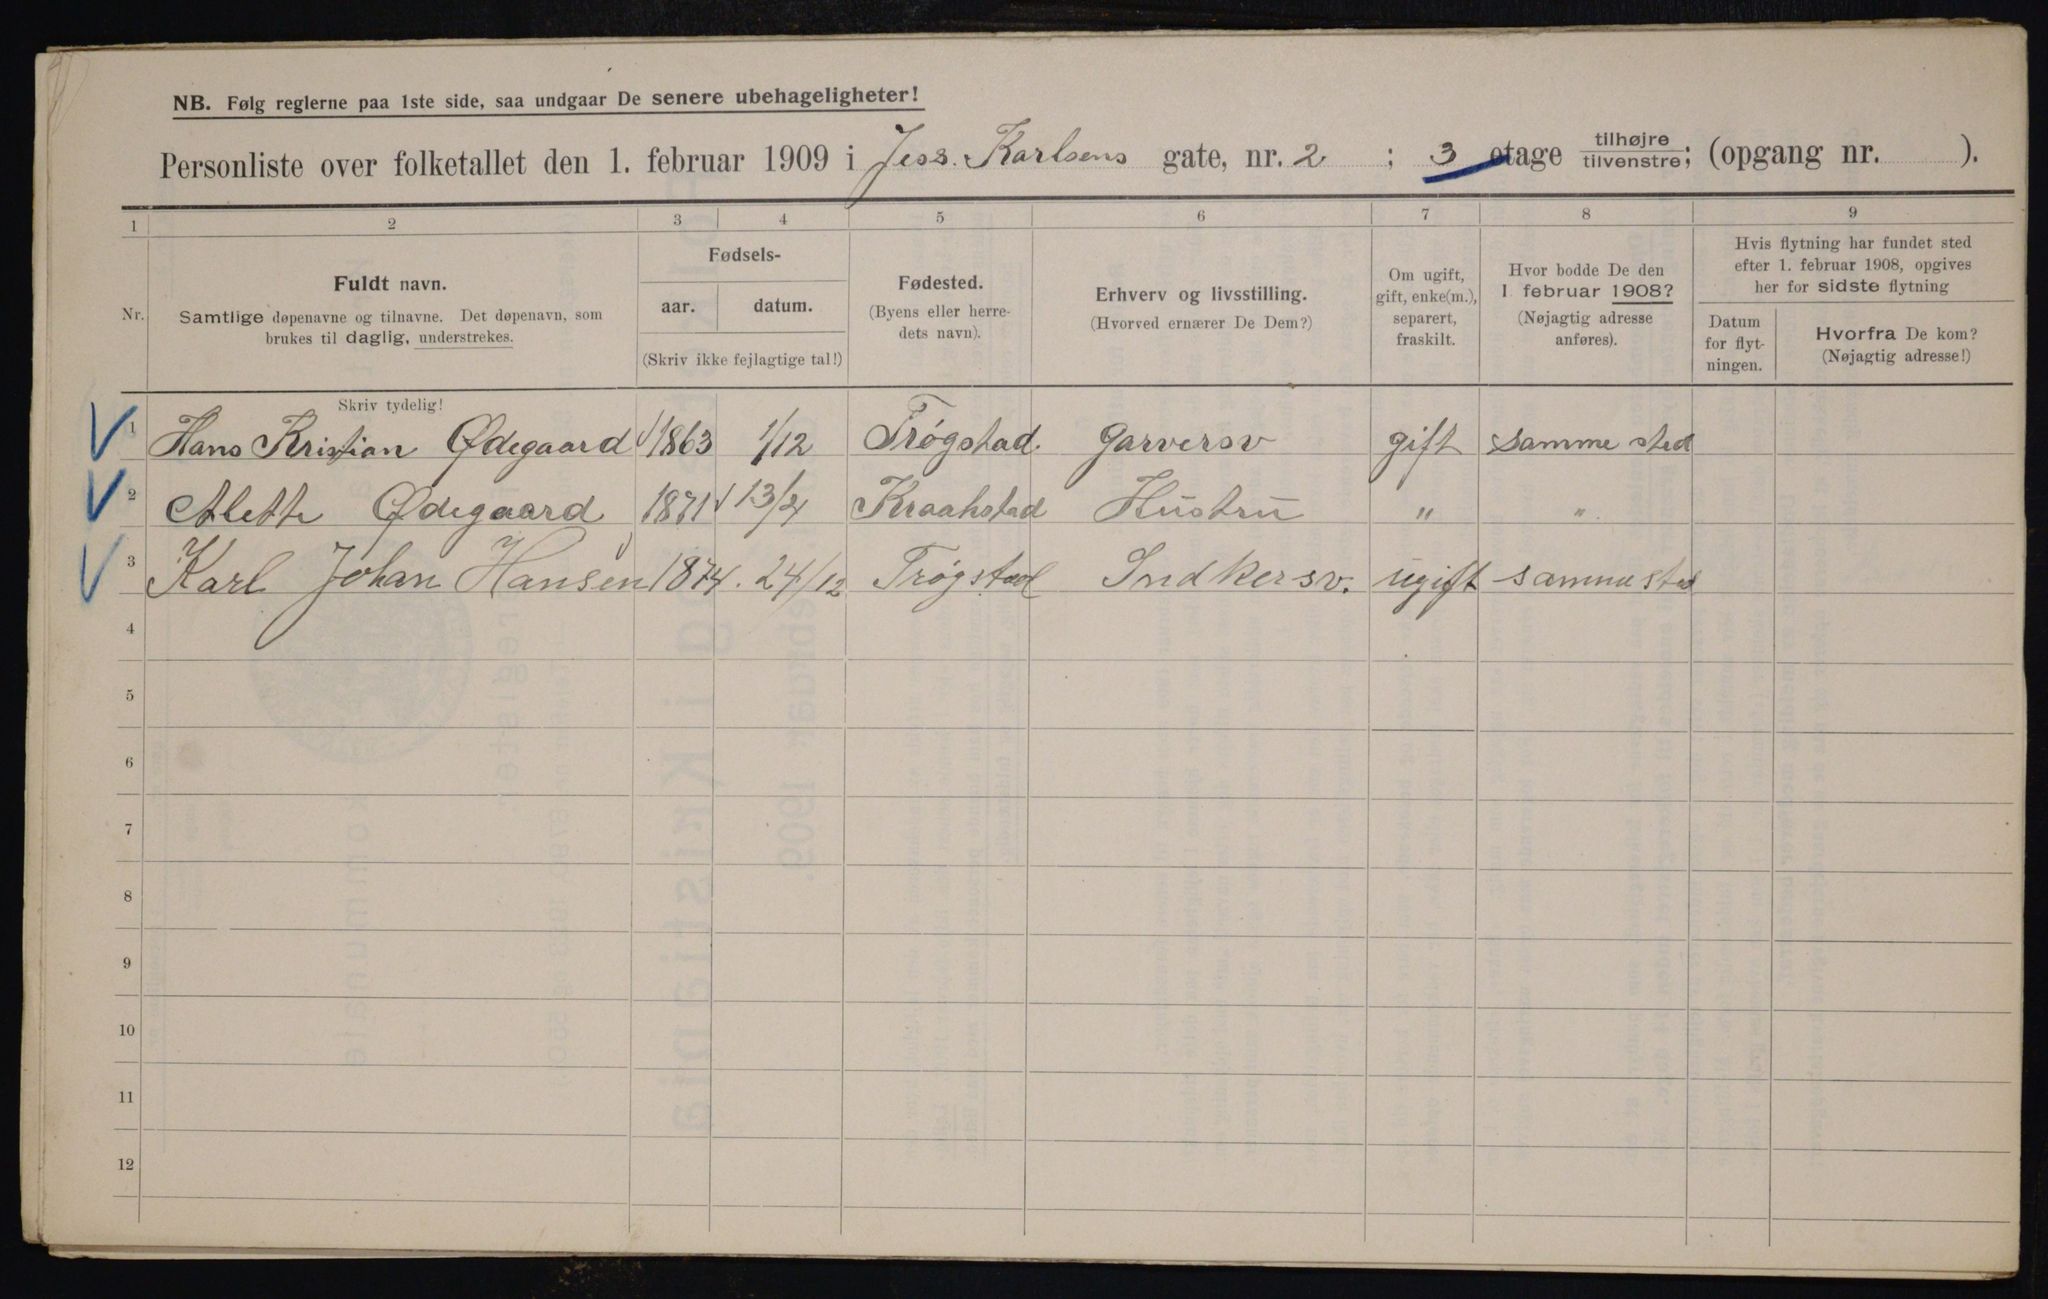 NB. Følg reglerne paa 1ste side, saa undgaar De senere ubehageligheter!
Personliste over folketallet den 1. februar 1909 i Jess. Karlsens gate, nr. 2 ; 3 etage tilhøjre tilvenstre; (opgang nr. ).
1 2 3 4 5 6 7 8 9
Nr.
Fuldt navn.
Samtlige døpenavne og tilnavne. Det døpenavn, som
brukes til daglig, understrekes.
Fødsels-
aar. datum.
(Skriv ikke fejlagtige tal!)
Fødested.
(Byens eller herre-
dets navn).
Erhverv og livsstilling.
(Hvorved ernærer De Dem?)
Om ugift,
gift, enke(m.),
separert,
fraskilt.
Hvor bodde De den
1 februar 1908?
(Nøjagtig adresse
anføres).
Hvis flytning har fundet sted
efter 1. februar 1908, opgives
her for sidste flytning
Datum
for flyt-
ningen.
Hvorfra De kom?
(Nøjagtig adresse!)
Skriv tydelig!
1 Hans Kristian Ødegaard 1863 1/12 Trøgstad Garversv gift Samme sted
2 Alette Ødegaard 1871 13/2 Kraahstad Hustru " "
3 Karl Johan Hansen 1874. 24/12 Trøgstad Indkersv. ugift samme sted
4
5
6
7
8
9
10
11
12